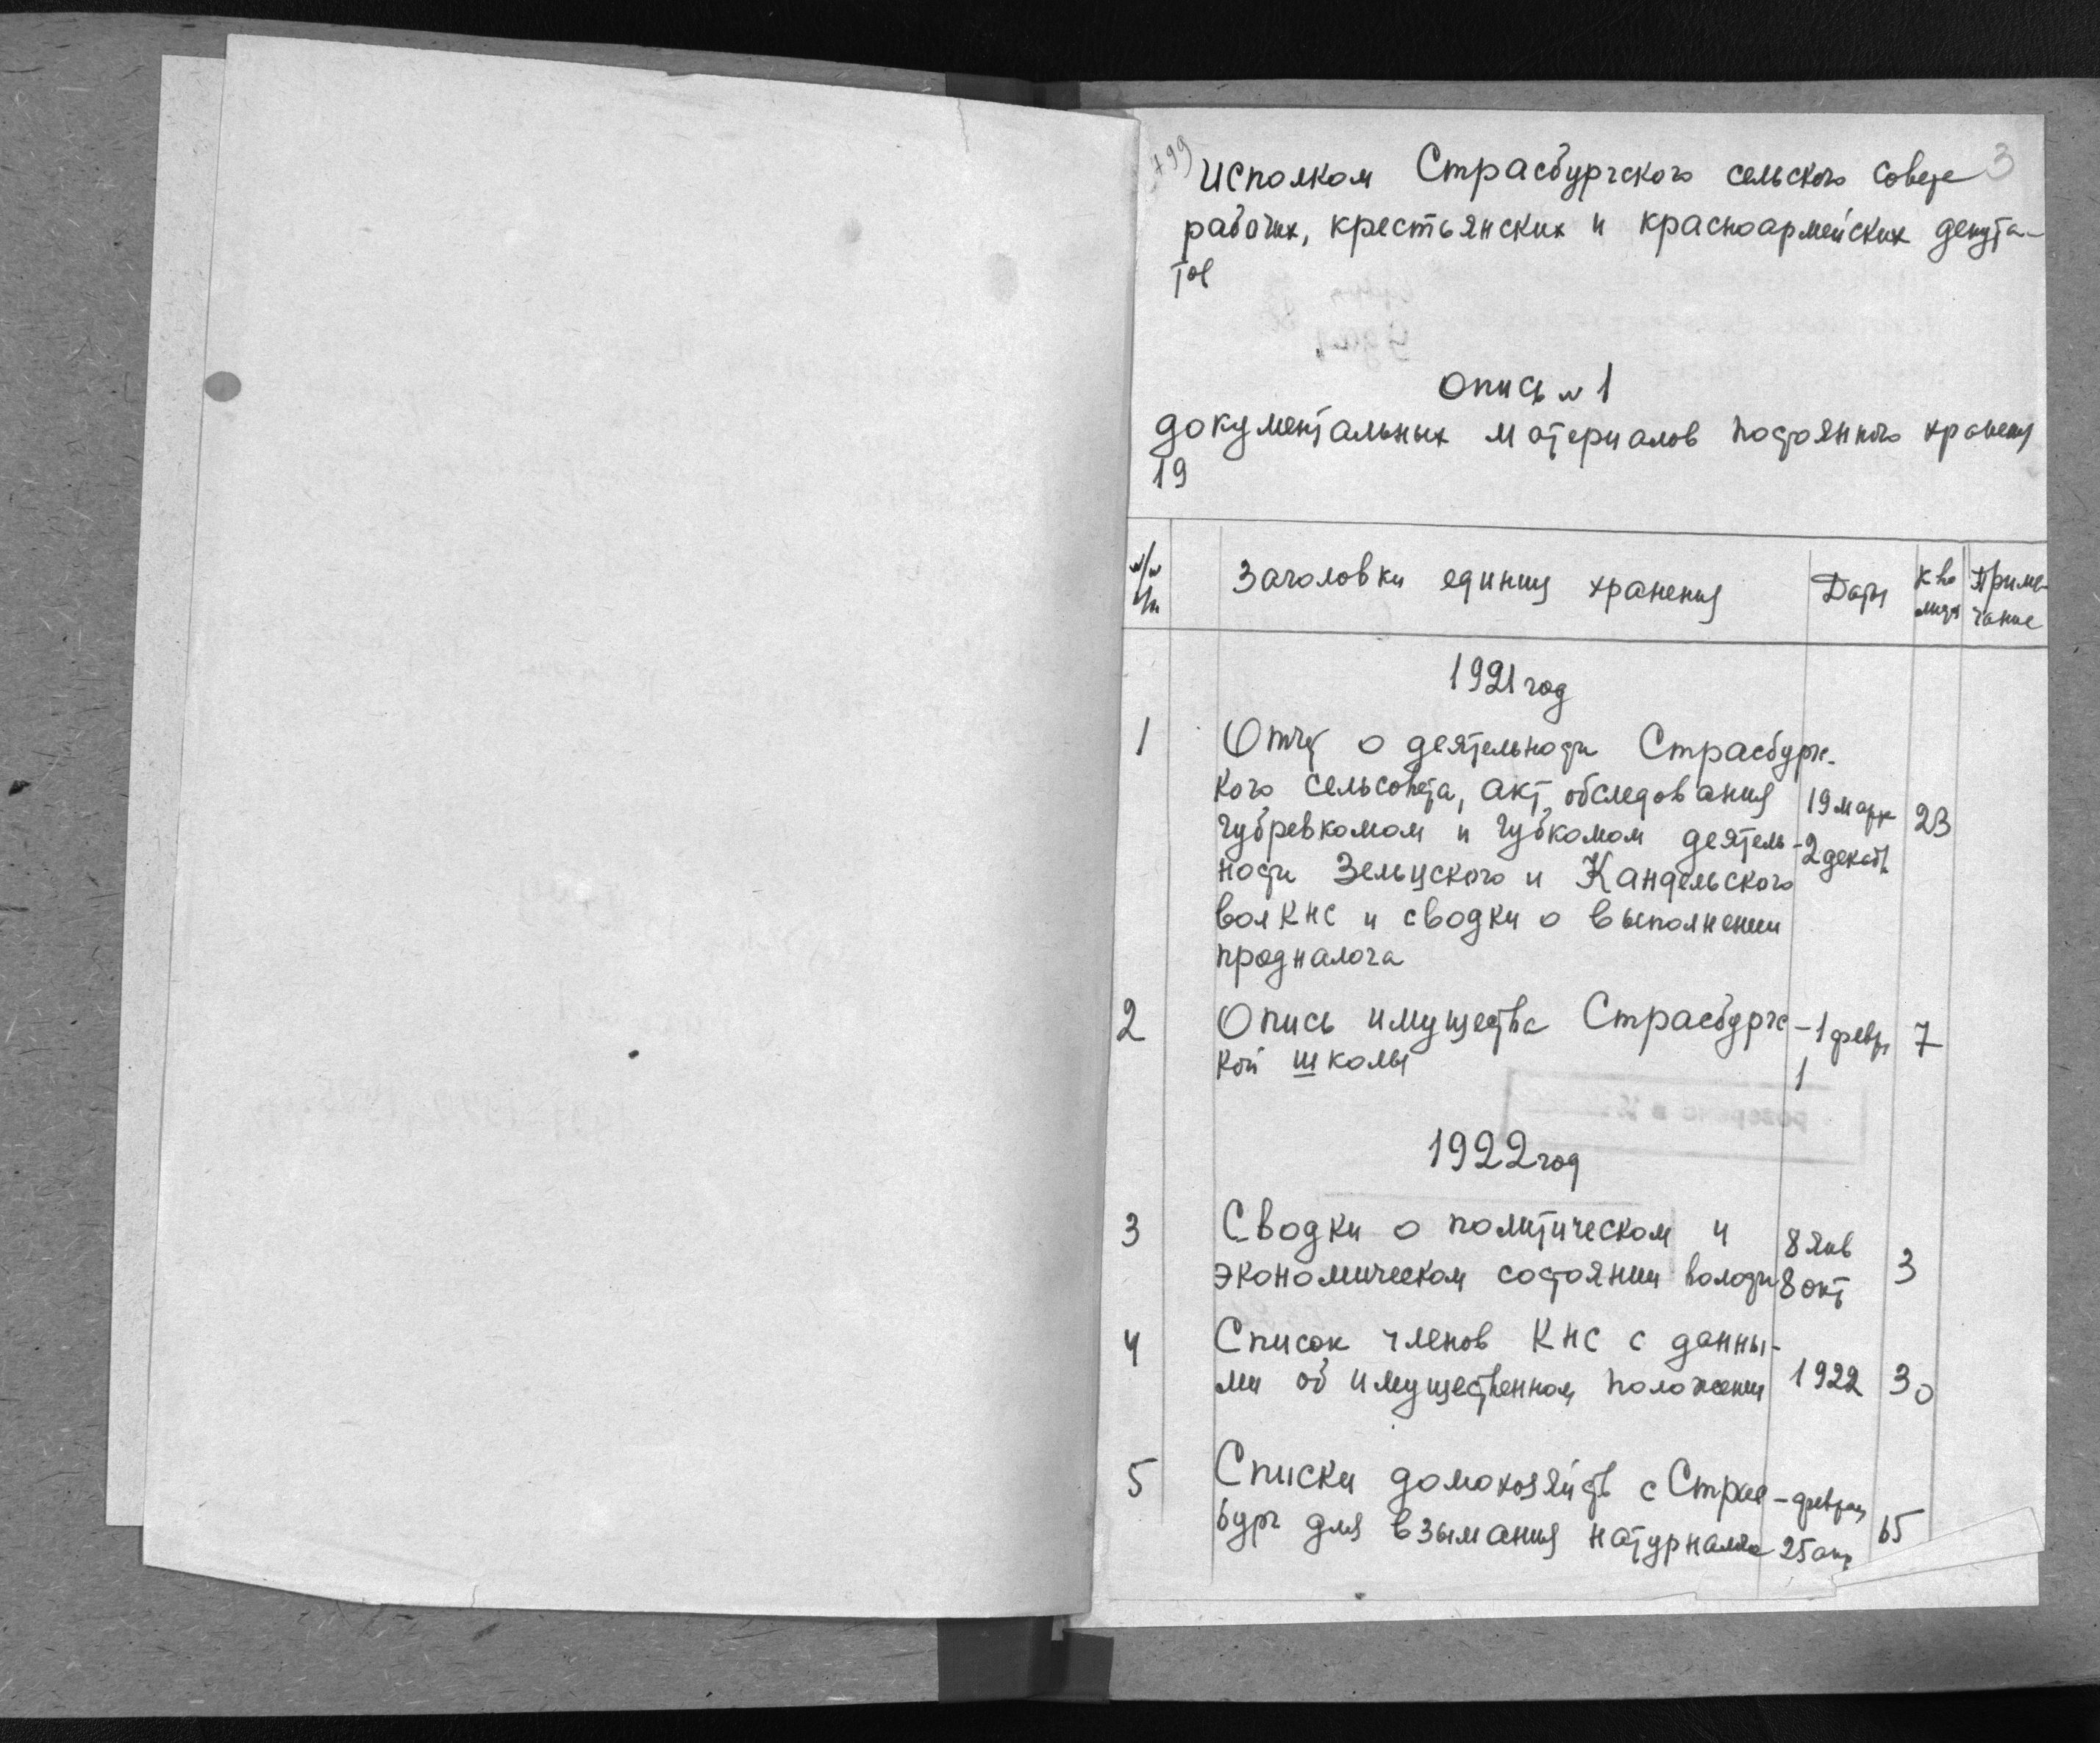 799
3
Исполком Страсбургского сельского совета
рабочих, крестьянских и красноармейских депута-
тов
Опись № 1
документальных материалов постоянного хранения
19
№/№ п/п
Заголовки единиц хранения
Даты
К-во листов
Приме-
чание
1921 год
1
Отчет о деятельности Страсбургс-
кого сельсовета, акт обследования
губревкомом и губкомом деятель-
ности Зельцского и Кандельского
волКНС и сводки о выполнении
продналога
19 марта
-2 декаб.
23
2
Опись имущества Страсбургс
кой школы
-1 февр
1
7
1922 год
3
Сводки о политическом и
экономическом состоянии волости
8 янв
8 окт
3
4
Список членов КНС с данны-
ми об имущественном положении
1922
30
5
Списки домохозяйств с Страс-
бург для взымания натурналога
-февраль
25 окт
65